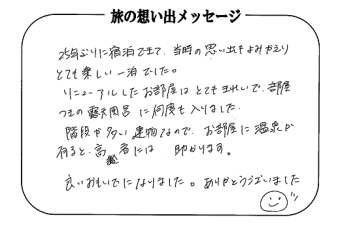 旅の想い出メッセージ
25年ぶりに宿泊できて、当時の思い出もよみがえり
とても楽しい一泊でした。
リニューアルしたお部屋はとてもきれいで、部屋
つきの露天風呂に何度も入りました。
階段が多い建物なので、お部屋に温泉が
有ると、高 者には 助かります。
良いおもいでになりました。ありがとうございました